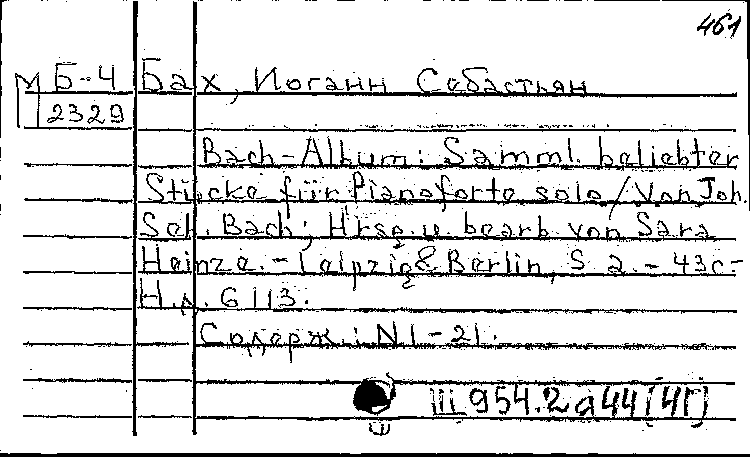 461
М Б-4 Бах, Иоганн Себастьян
2329
Bach-Album: Samml. beliebter
Stücke für Pianoforte solo / Von Joh.
Seb. Bach; Hrsg. u. bearb. von Sara
Heinze. - Leipzig & Berlin, S. a. - 43 c. -
Н.д. 6113.
Содерж.: N 1-21.
III 954.2 a 44 (4Г)